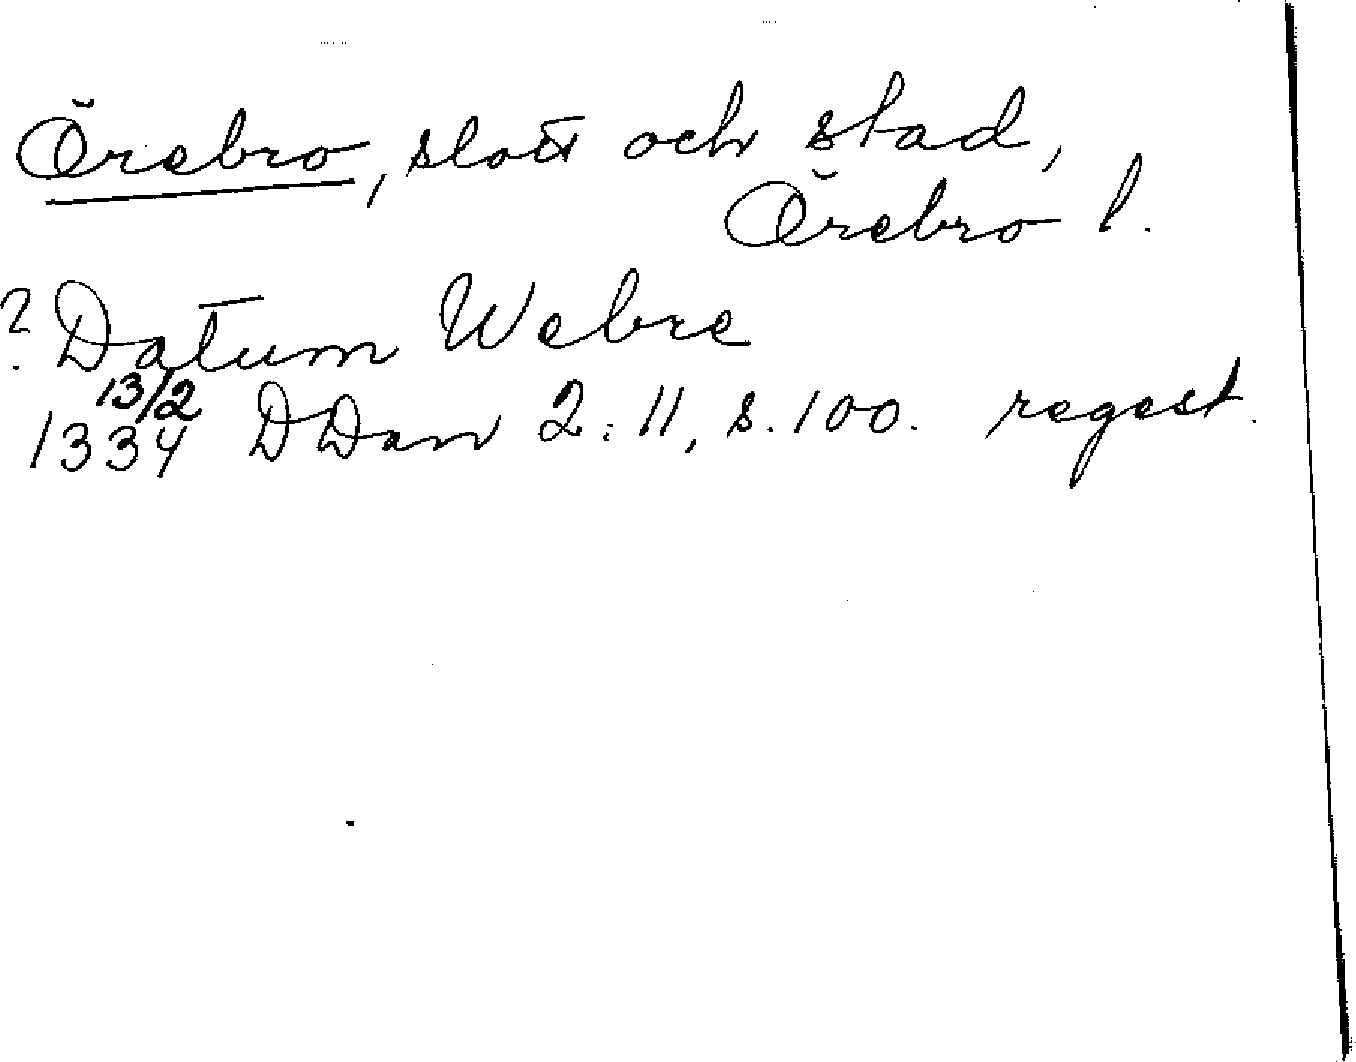 Örebro, slott och stad,
Örebro l.
? Datum Webre
13/2
1334 DDan 2:11, s. 100. regest.